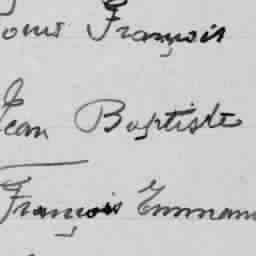 François
Jean Baptiste
François Emman